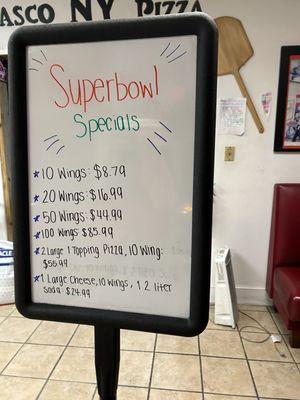 ASCO NY PIZZA
Superbowl
Specials
10 Wings: $8.79
20 Wings: $16.99
50 Wings: $44.99
100 Wings: $85.99
2 Large 1 Topping Pizza, 10 Wing:
$55.99
1 Large Cheese, 10 Wings, 1 2 liter
Soda: $24.99